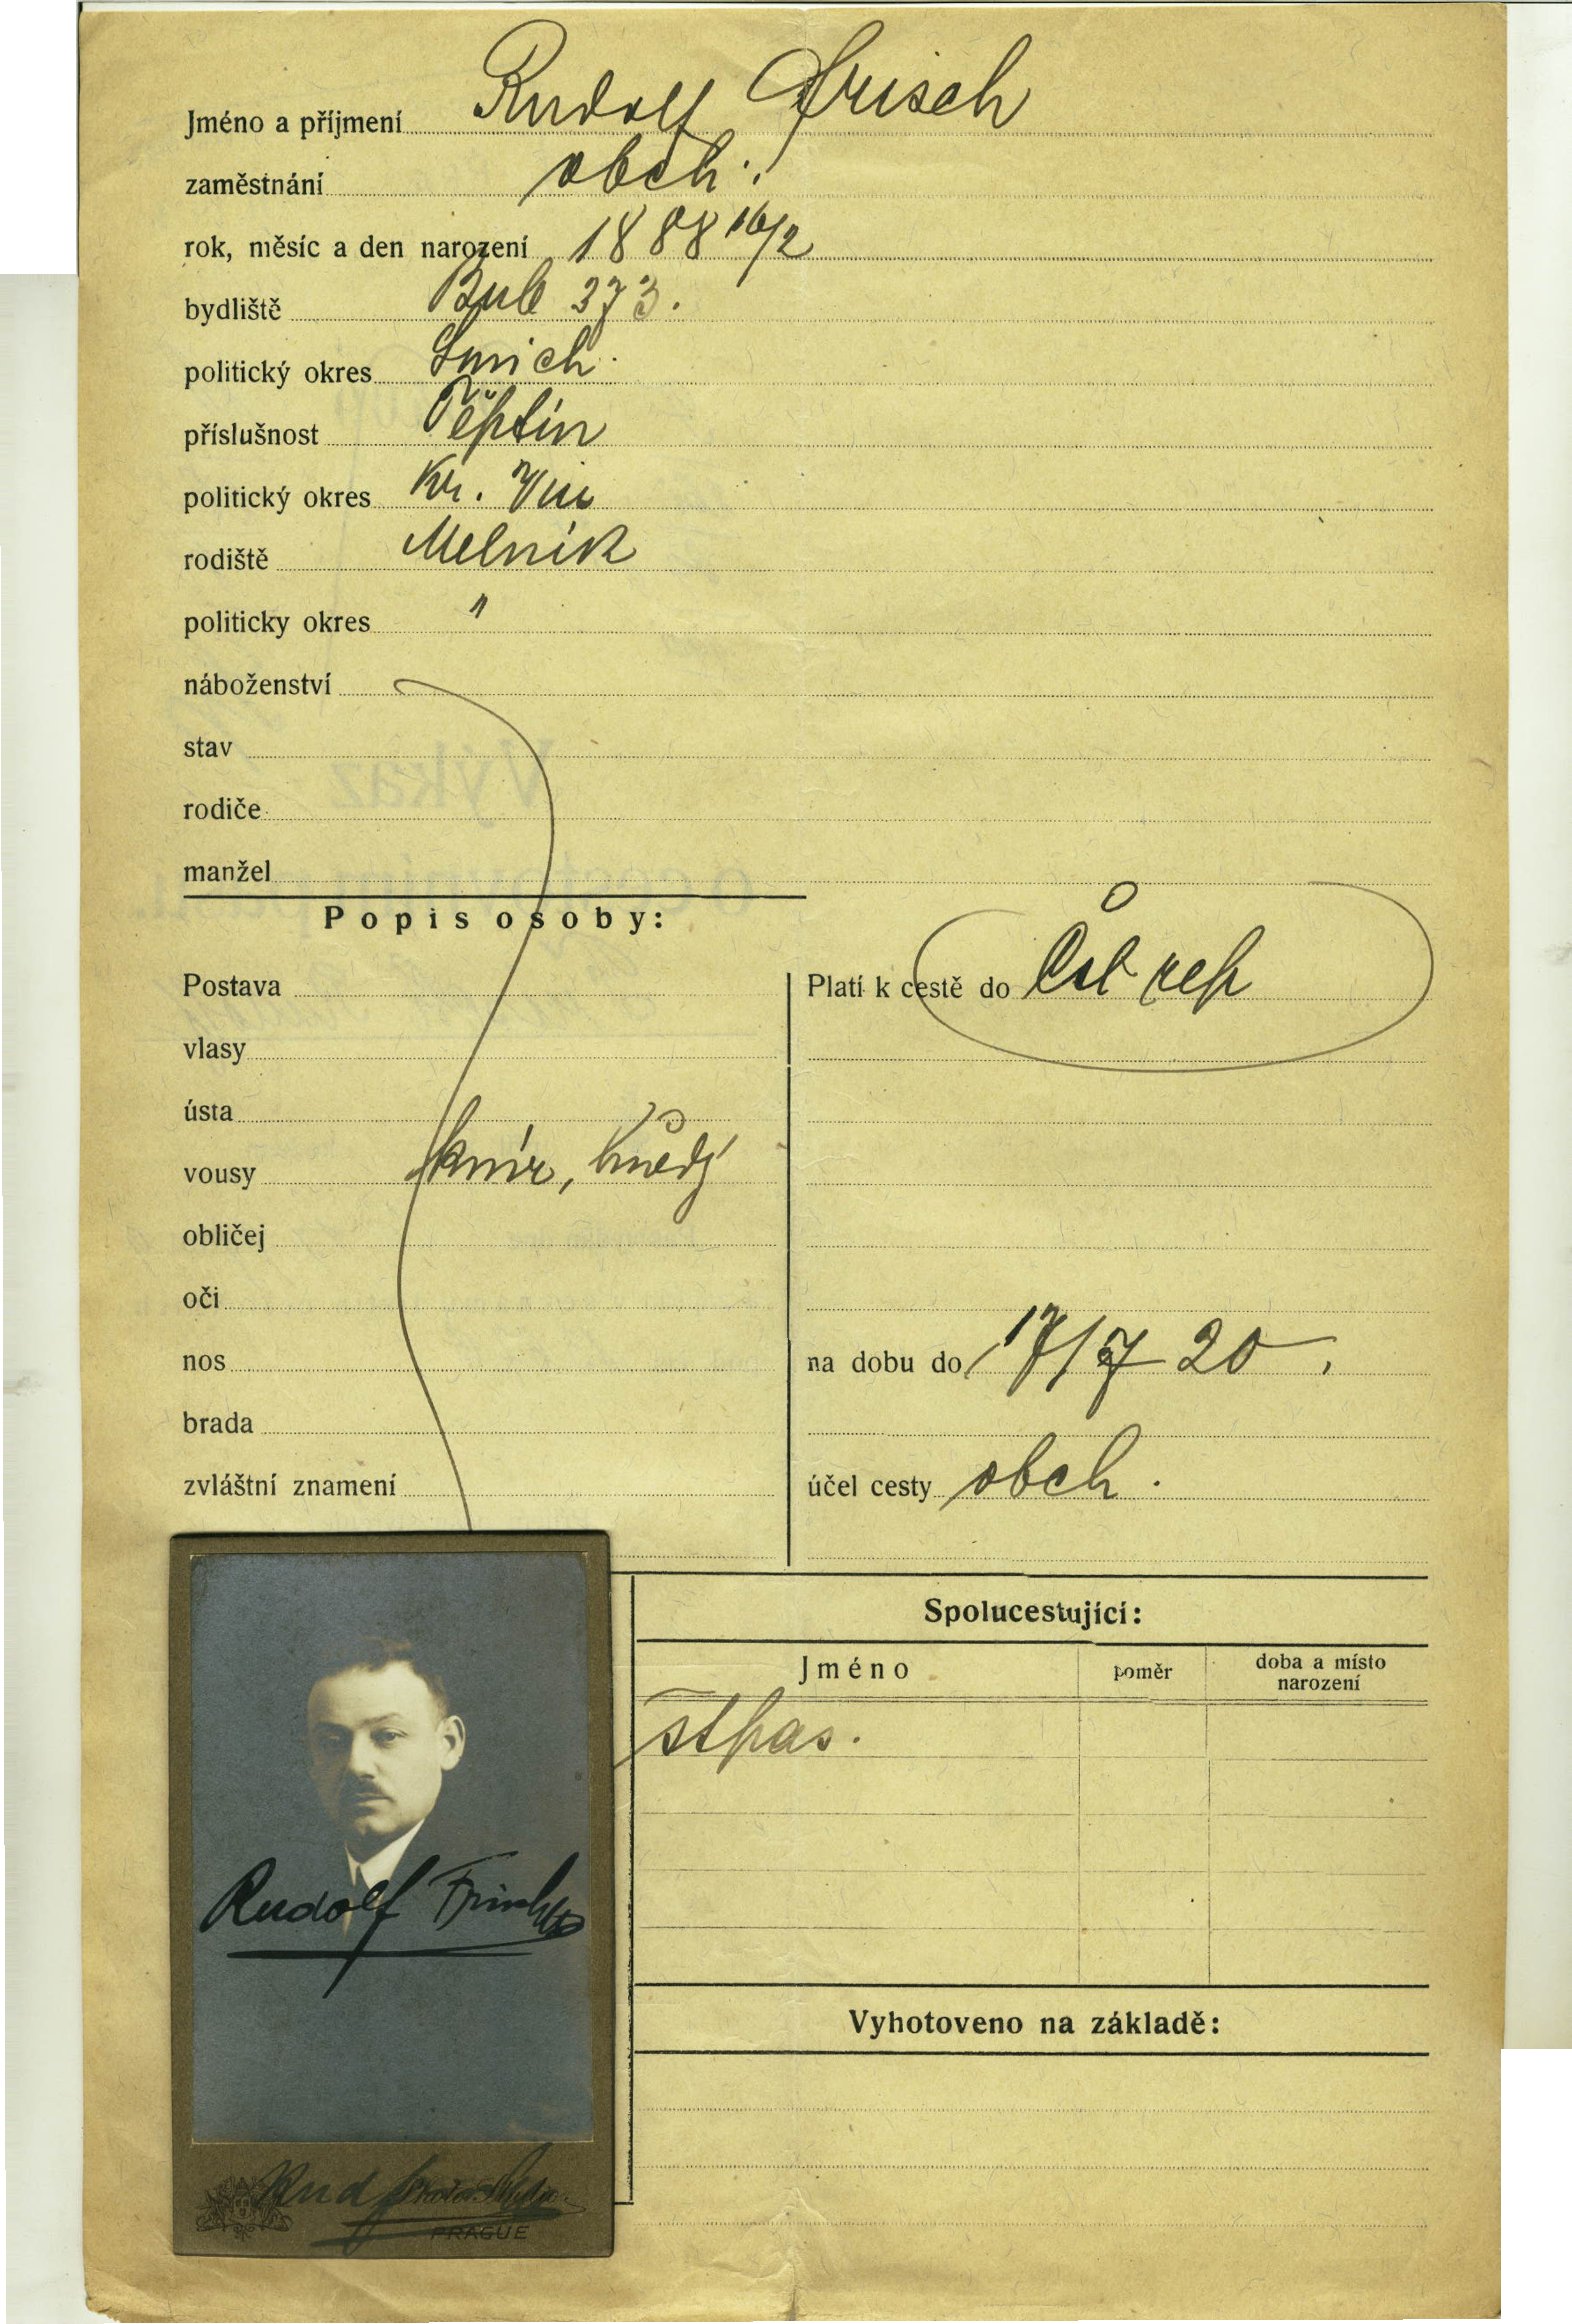 Jméno a příjmení Rudolf Frisch
zaměstnání obch.
rok, měsíc a den narození 1888 16/2
bydliště Bub 373.
politický okres Smich.
příslušnost Těptín
politický okres Kr. Vin
rodiště Melník
politicky okres "
náboženství
stav
rodiče
manžel
Popis osoby:
Postava
vlasy
ústa
vousy knír, hnědý
obličej
oči
nos
brada
zvláštní znamení
Platí k cestě do Čsl rep
na dobu do 17/7 20.
účel cesty obch.
Spolucestující:
Jméno poměr doba a místo narození
Vyhotoveno na základě:
Rudolf Frisch
Rud
PRAGUE